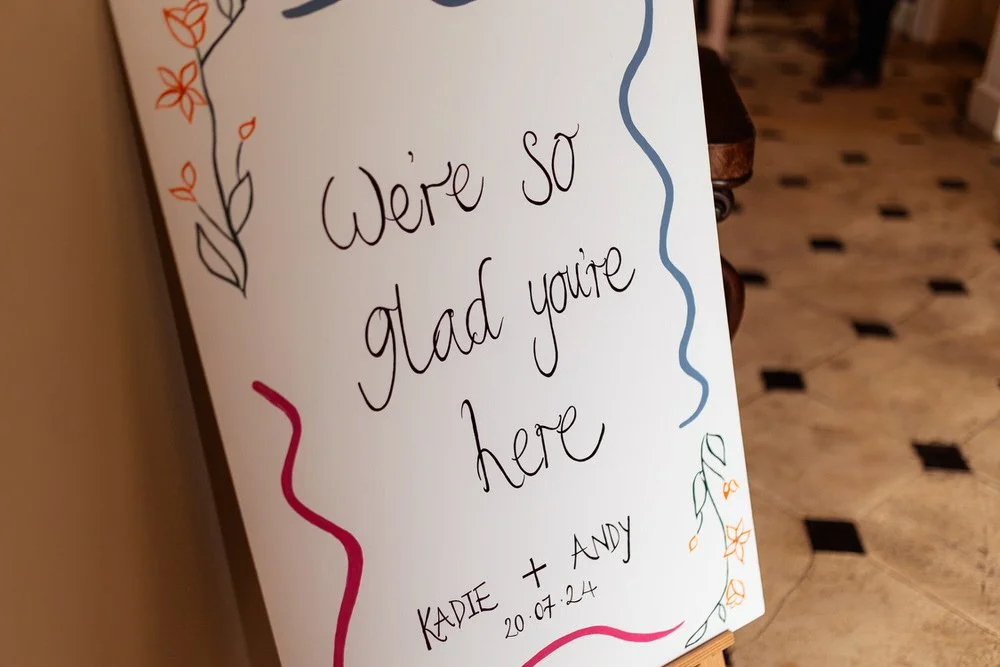 We're so
glad you're
here
KADIE + ANDY
20.07.24